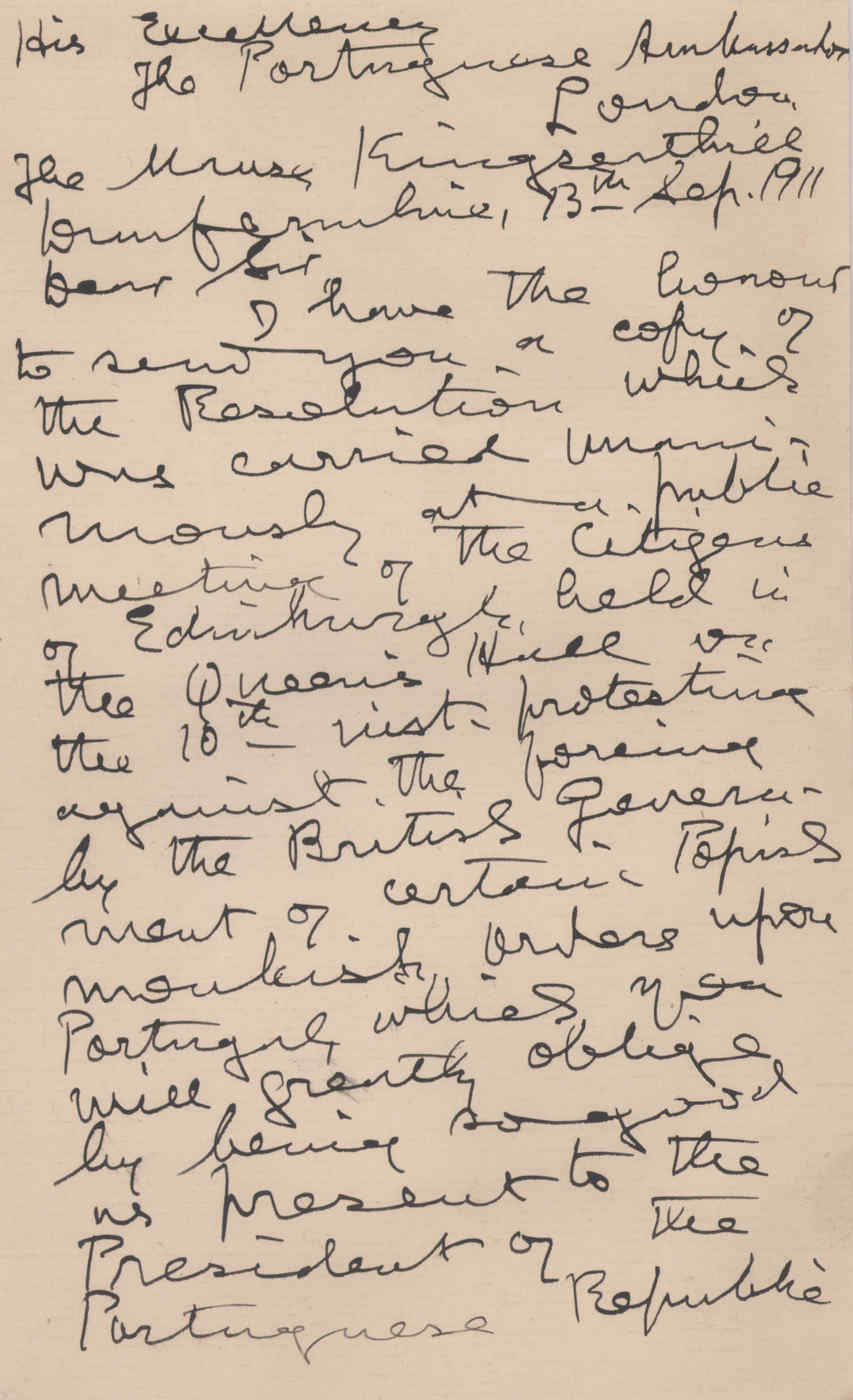 His Excellency
The Portuguese Ambassador
London.
The Manse, Kingseathill
Dunfermline, 13th Sep. 1911
Dear Sir,
I have the honour
to send you a copy of
the Resolution which
was carried unani-
mously at a public
meeting of the Citizens
of Edinburgh, held in
the Queen's Hall on
the 10th inst. protesting
against the forcing
by the British Govern-
ment of certain Popish
monkish Orders upon
Portugal, which you
will greatly oblige
by being so good
as present to the
President of the
Portuguese Republic